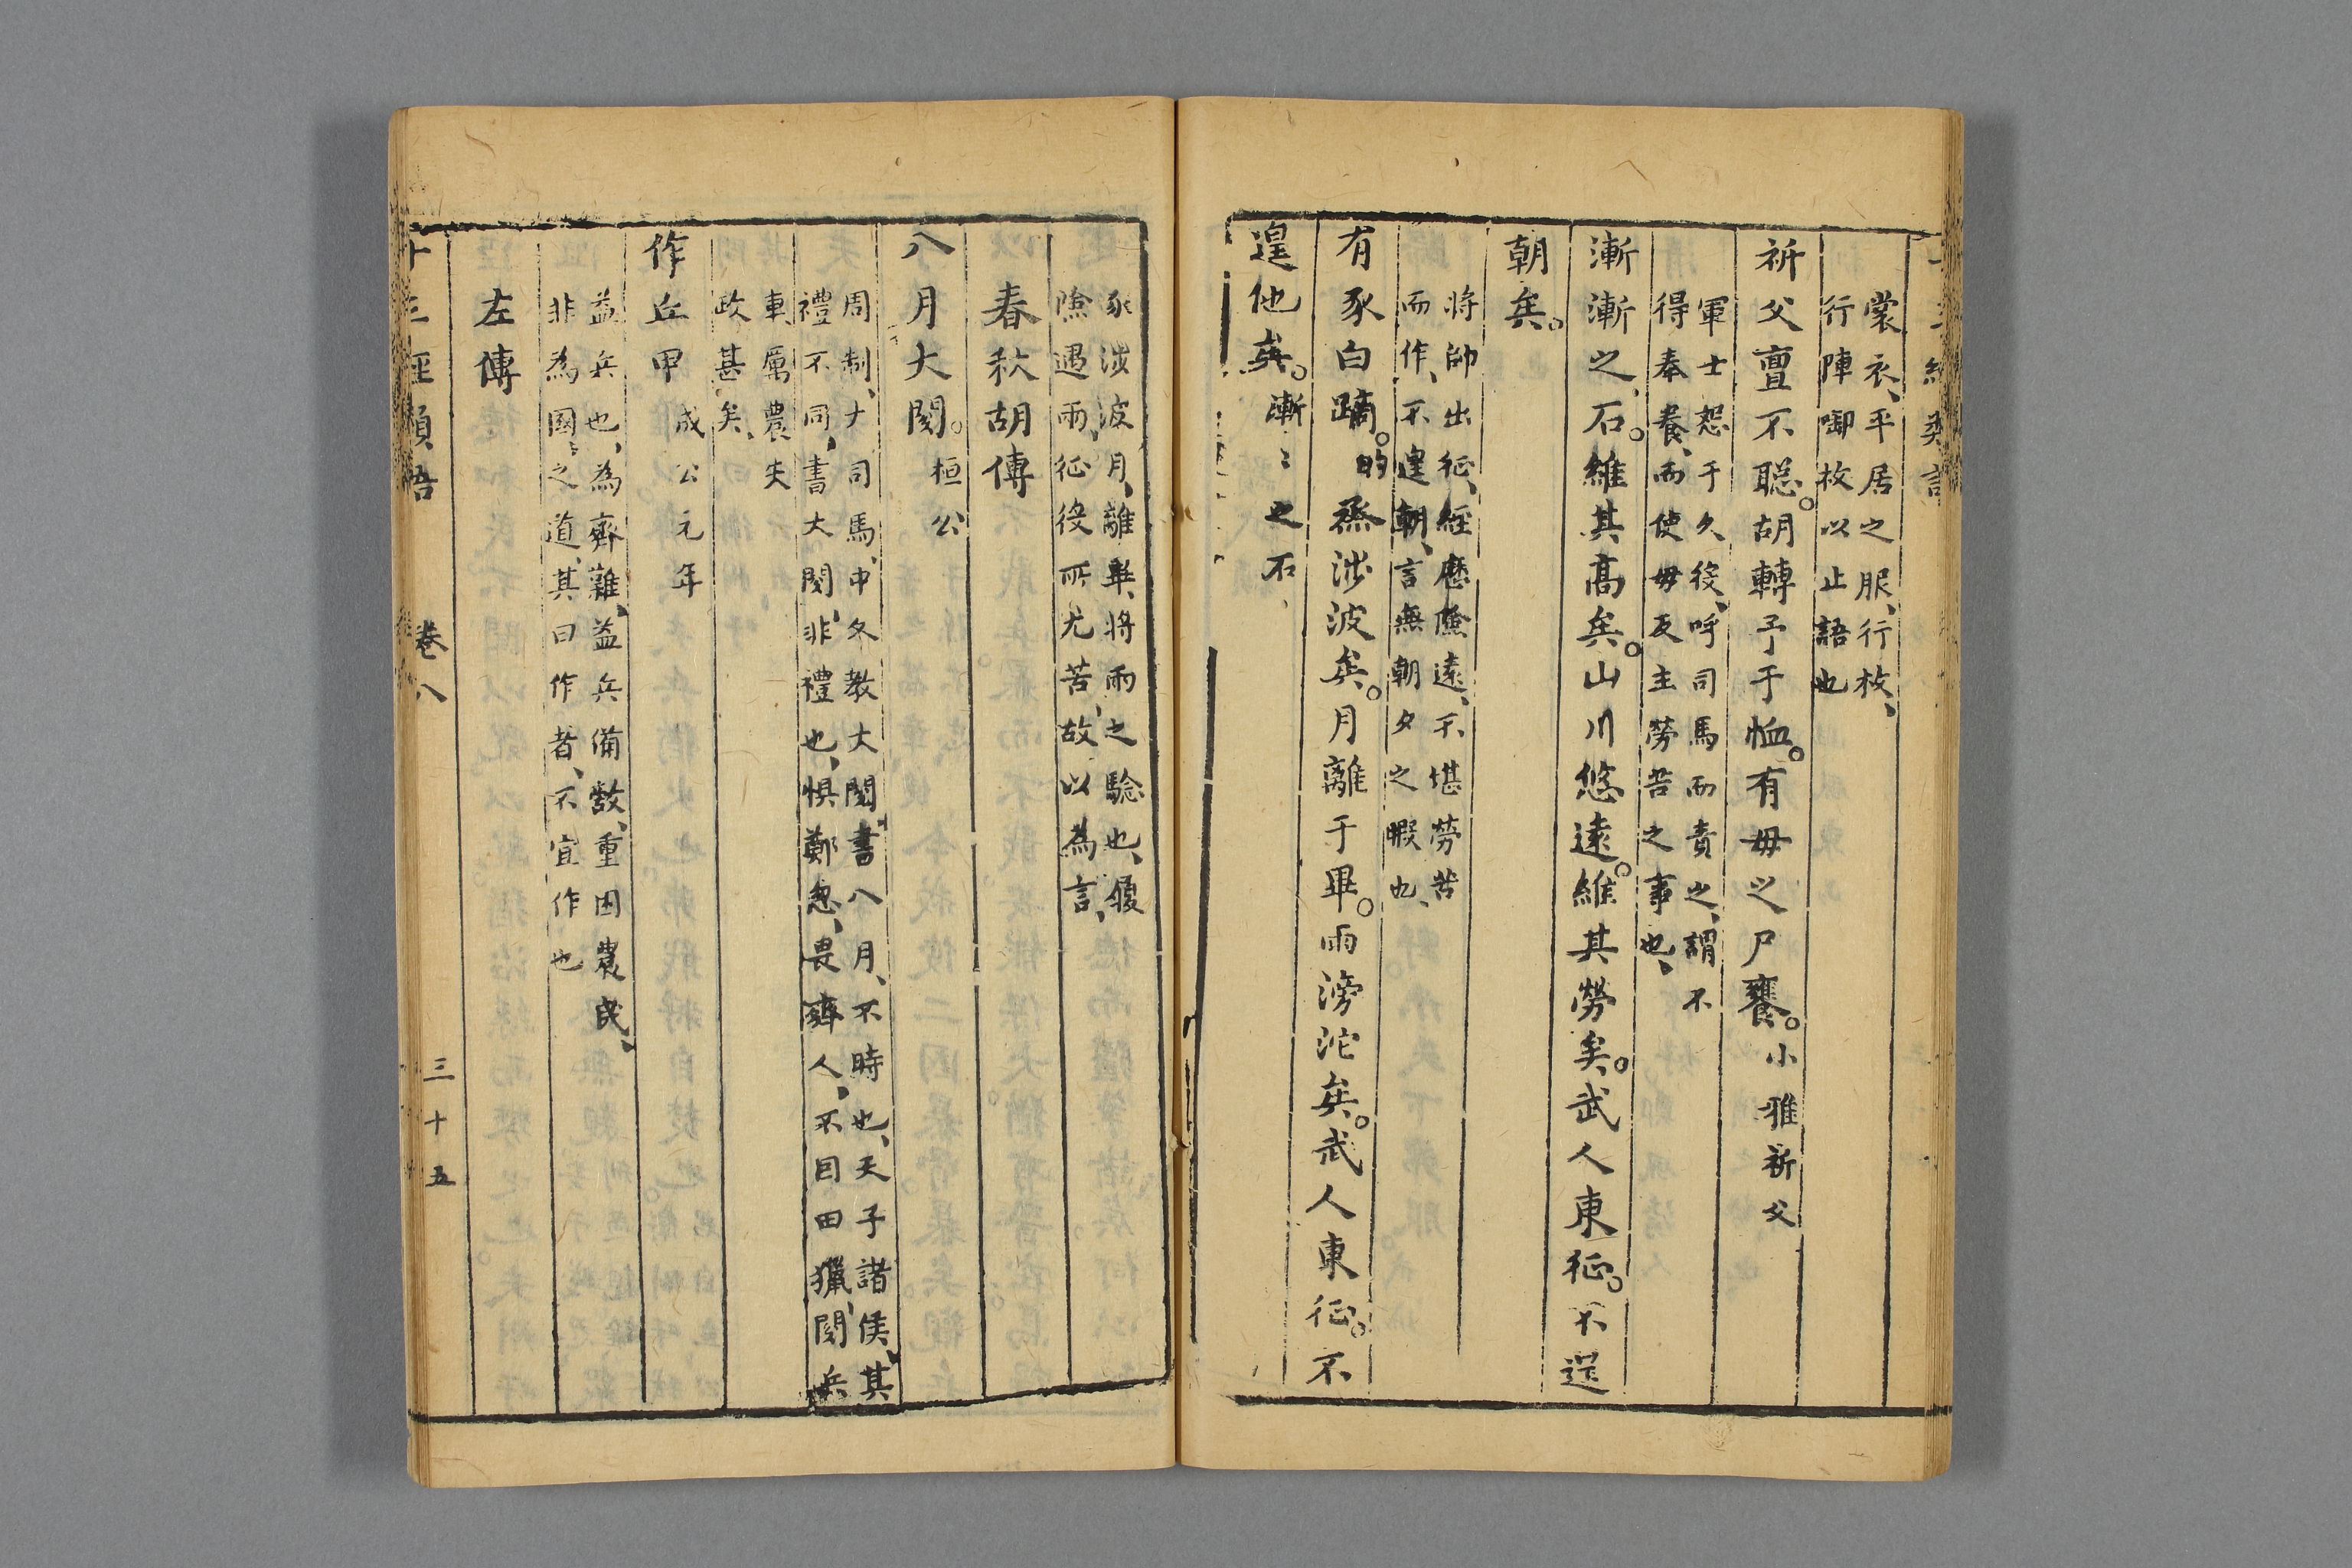 裳衣、平居之服、行枚、
行陣啣枚以止語也
祈父亶不聡。胡轉予于恤。有毋之尸饔。小雅祈父
軍士怨于久役、呼司馬而責之、謂不
得奉養、而使毋反主勞苦之事也、
漸漸之石。維其髙矣。山川悠遠。維其勞矣。武人東征。不遑
朝矣。
將帥出征、經歷險遠、不堪勞苦
而作、不遑朝、言無朝夕之暇也、
有豕白蹢。的烝涉波矣。月離于畢。雨滂沱矣。武人東征。不
遑他矣。漸〻之石
豕涉波月、離畢、將雨之驗也、履
險遇雨、征役所尤苦、故以為言、
春秋胡傳
八月大閱。桓公
周制、大司馬、中冬教大閱、書八月、不時也、天子諸侯、其
禮不同、書大閱、非禮也、惧鄭忽、畏齊人、不因田獵、閱兵
車、厲農失
政甚矣、
作丘甲成公元年
益兵也、為齊難、益兵備敵、重困農民、
非為國之道、其曰作者、不宜作也
左傳
十三經類語 卷八 三十五